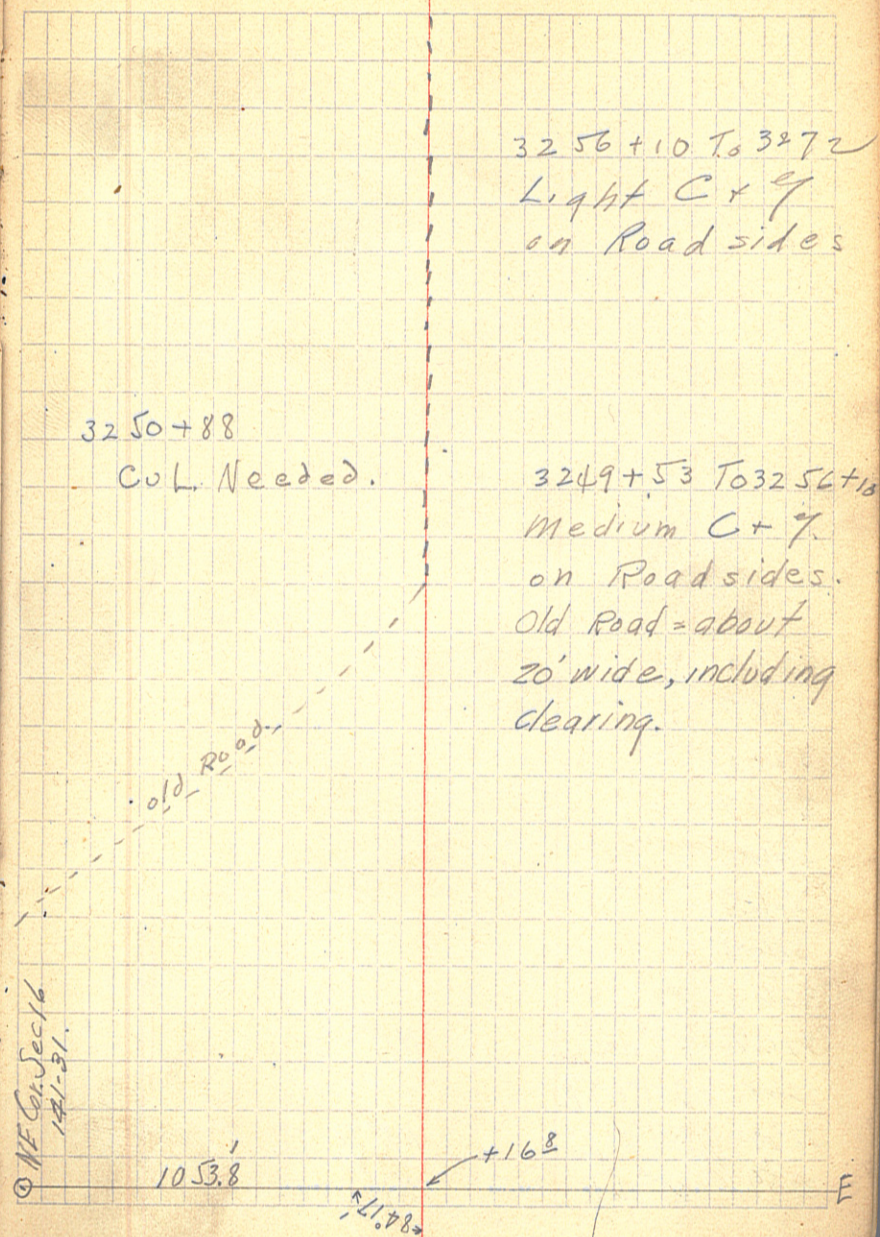 3256+10 To 3272
Light C + G
on Roadsides
3250+88
Cul. Needed.
3249+53 To 3256+10
Medium C + G.
on Roadsides.
Old Road = about
20' wide, including
clearing.
Old Road
NE Cor. Sec 16
141-31.
1053.8'
+16 8
84°17'
E